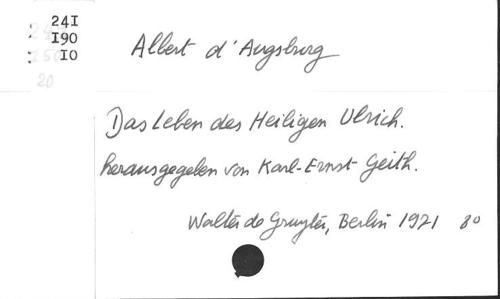 241
190
10
Albert d'Augsburg
Das Leben des Heiligen Ulrich.
herausgegeben von Karl-Ernst Geith.
Walter de Gruyter, Berlin 1971 80